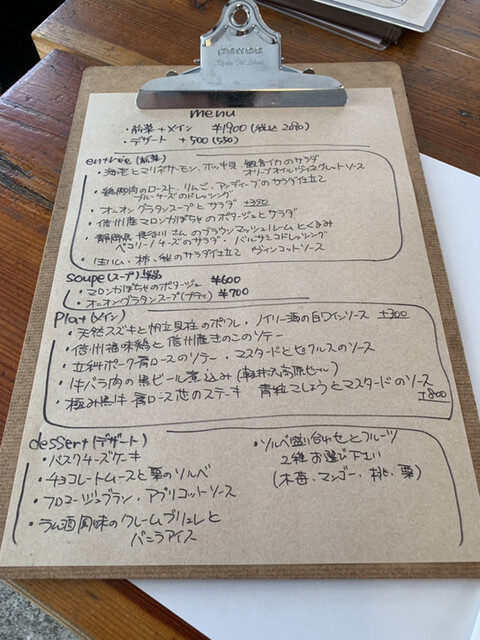 menu
・前菜+メイン ¥1900(税込 2090)
・デザート +500(550)
entrée(前菜)
・海老とマリネサーモン、ホッキ貝、甲イカのサラダ
オリーブオイルヴィネグレットソース
・鶏胸肉のロースト、リンゴ、アンディーブのサラダ仕立て
ブルーチーズのドレッシング
・オニオングラタンスープとサラダ +330
・信州産マロンかぼちゃのポタージュとサラダ
・静岡県 長谷川さんのブラウンマッシュルームとくるみ
ペコリーノチーズのサラダ、バルサミコドレッシング
・生ハム、柿、のサラダ仕立て ヴィンコットソース
soupe(スープ)単品
・マロンかぼちゃのポタージュ ¥600
・オニオングラタンスープ(プティ) ¥700
Plat(メイン)
・天然スズキと帆立貝柱のポワレ、ノイリー酒の白ワインソース +300
・信州福味鶏と信州産きのこのソテー
・立科ポーク肩ロースのソテー、マスタードとピクルスのソース
・牛バラ肉の黒ビール煮込み(軽井沢高原ビール)
・極み黒牛 肩ロース芯のステーキ 青粒こしょうとマスタードのソース
+800
dessert(デザート)
・バスクチーズケーキ
・チョコレートムースと栗のソルベ
・フロマージュブラン、アプリコットソース
・ラム酒風味のクレームブリュレと
バニラアイス
・ソルベ盛り合わせとフルーツ
2種お選び下さい
(木苺、マンゴー、桃、栗)